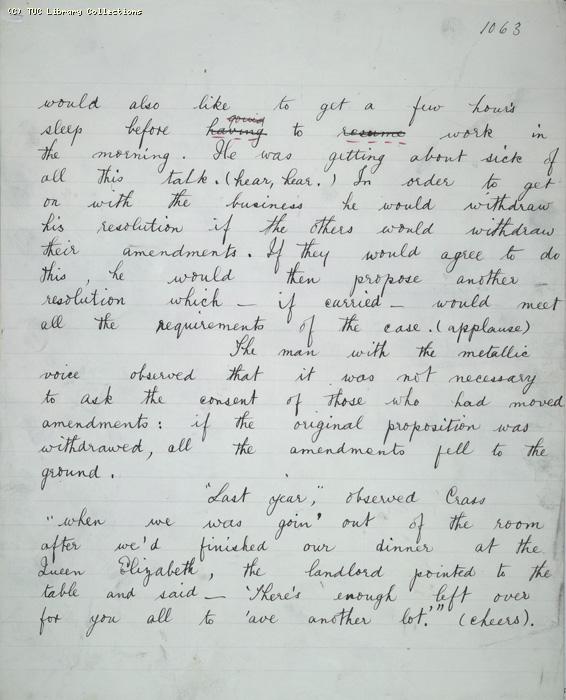 (C) TUC Library Collections
1063
would also like to get a few hours
going
sleep before having to resume work in
the morning. He was getting about sick of
all this talk. (hear, hear.) In order to get
on with the business he would withdraw
his resolution if the others would withdraw
their amendments. If they would agree to do
this, he would then propose another
resolution which — if carried — would meet
all the requirements of the case. (applause)
The man with the metallic
voice observed that it was not necessary
to ask the consent of those who had moved
amendments: if the original proposition was
withdrawed, all the amendments fell to the
ground.
"Last year," observed Crass
"when we was goin' out of the room
after we'd finished our dinner at the
Queen Elizabeth, the landlord pointed to the
table and said — 'There's enough left over
for you all to 'ave another lot.'" (cheers).